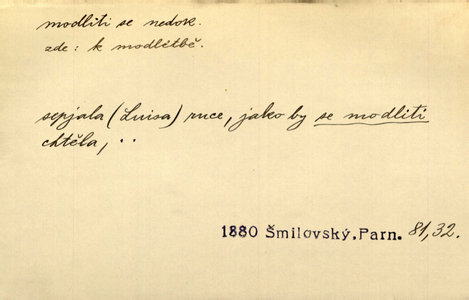 modliti se nedok.
zde: k modlitbě.
sepjala (Luisa) ruce, jako by se modliti
chtěla, ..
1880 Šmilovský, Parn. 81, 32.